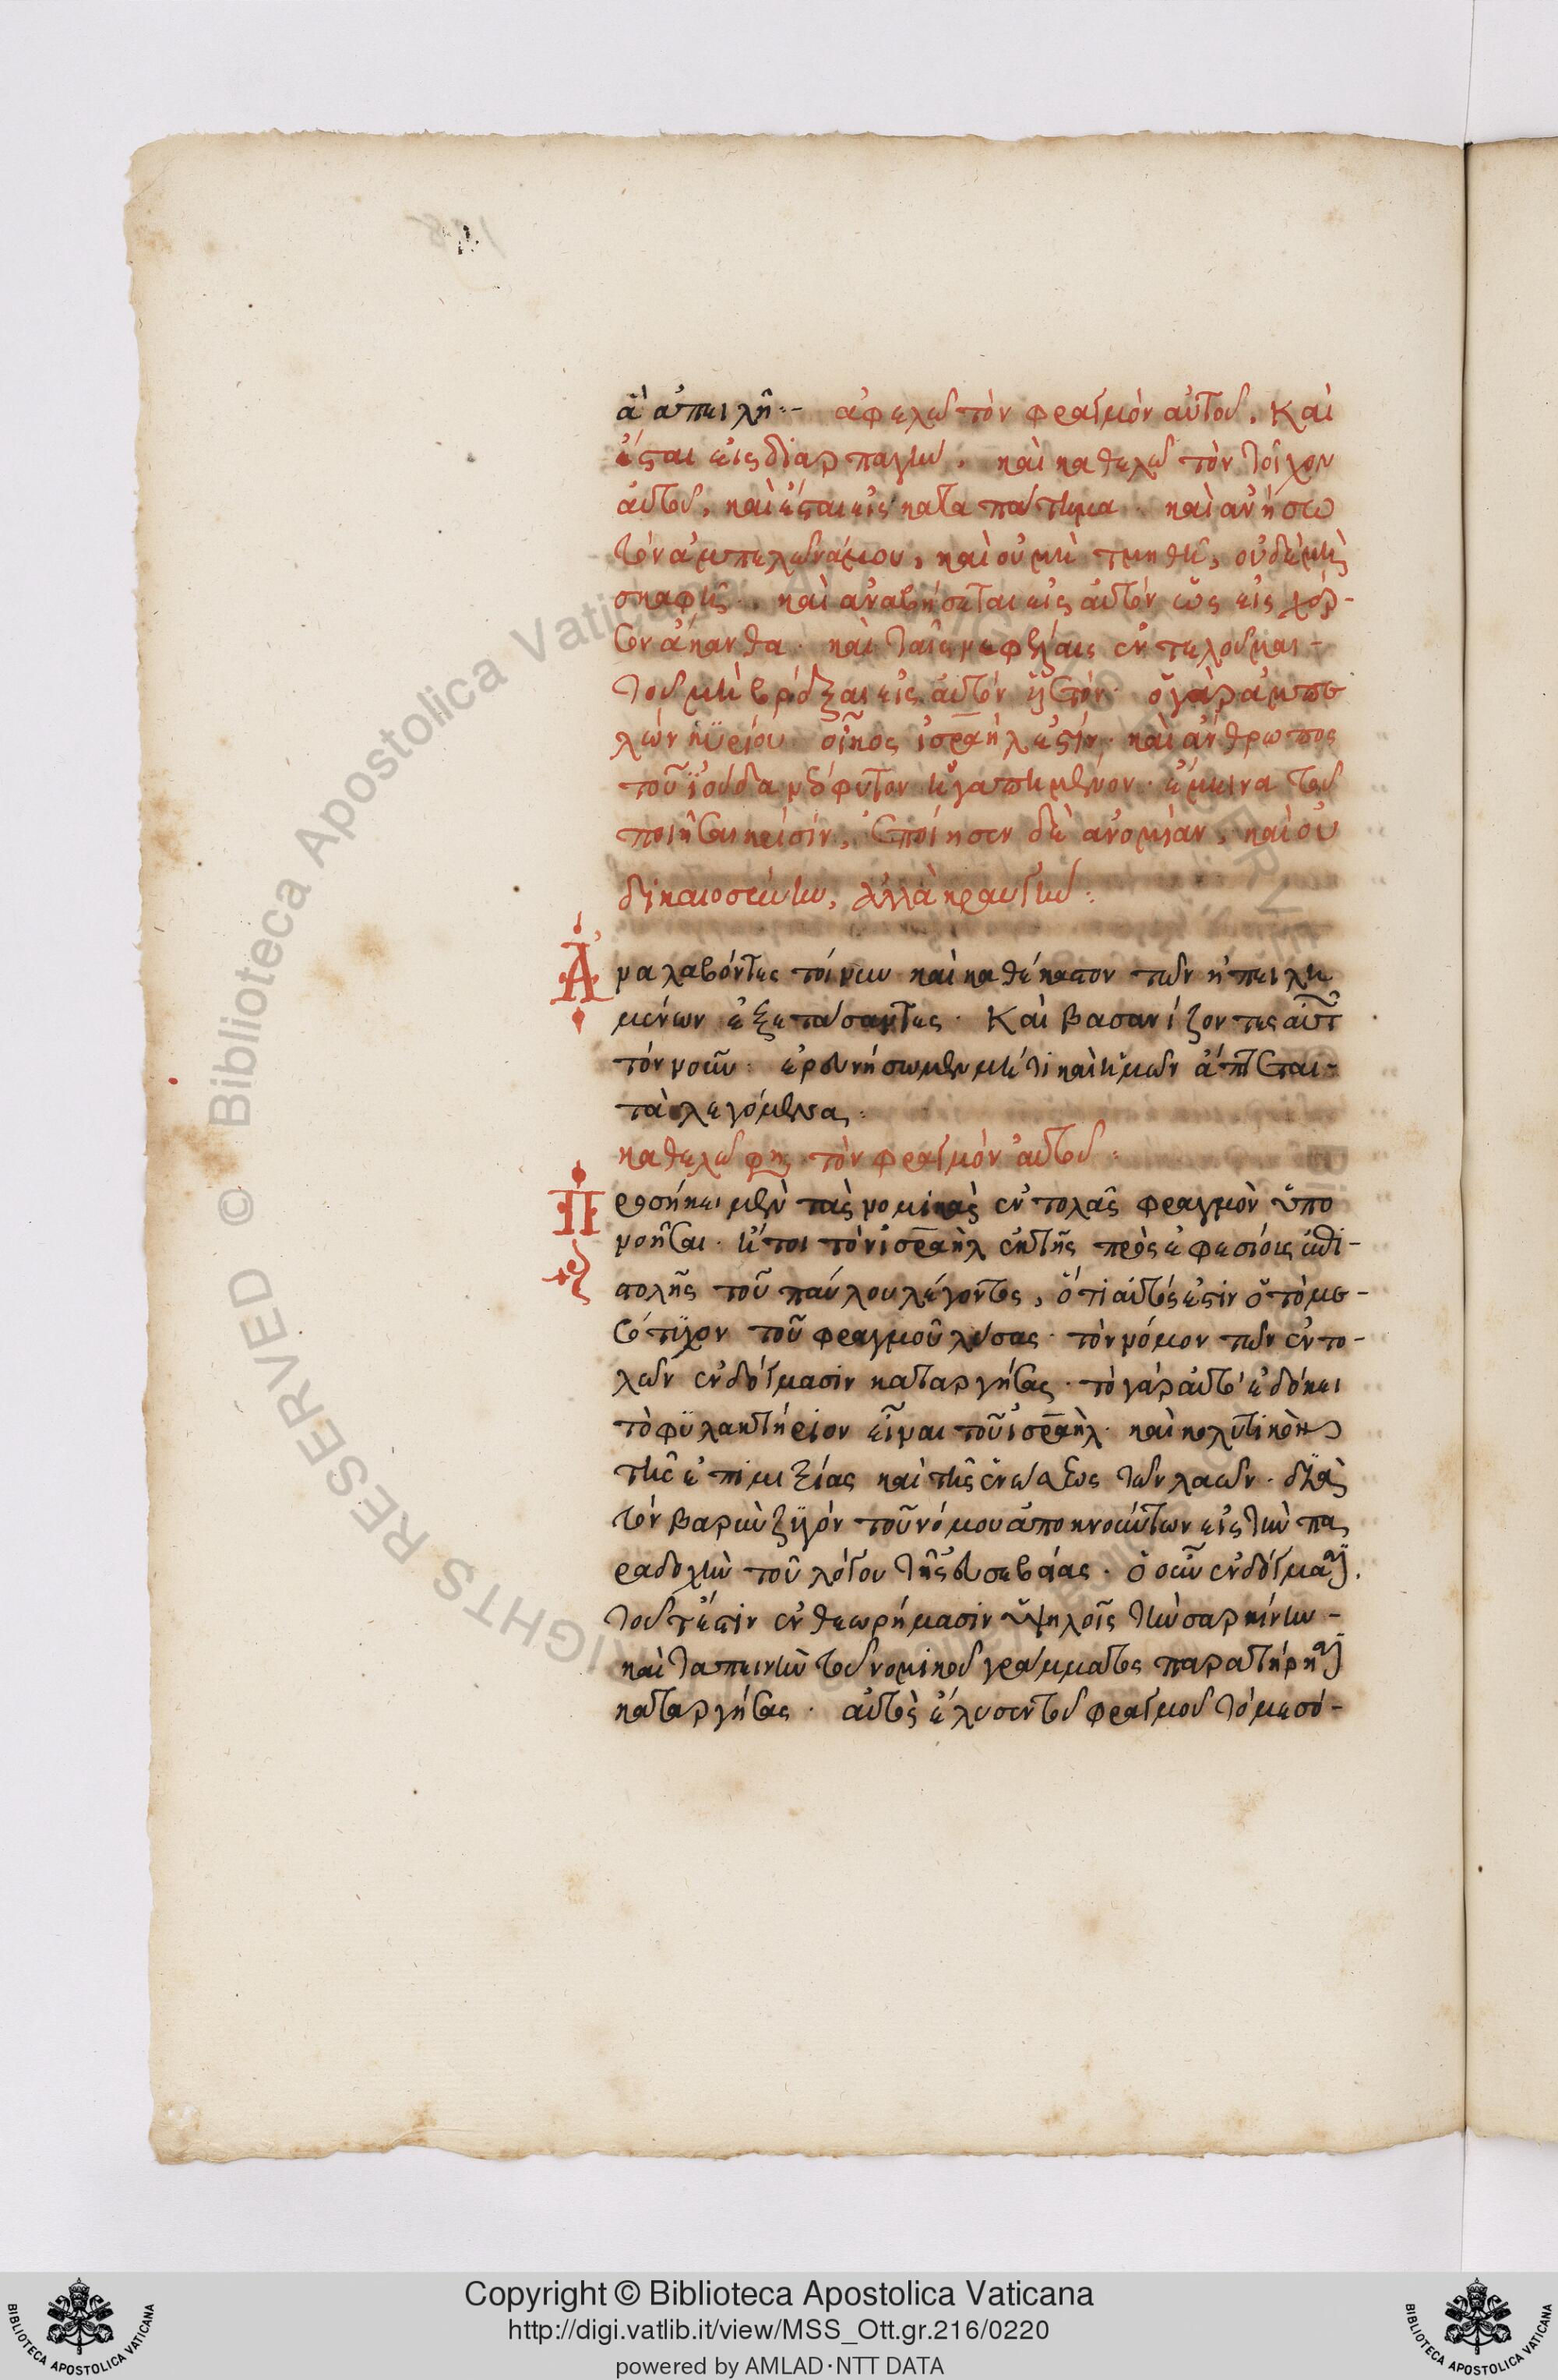 ἃ ἀπειλῆ·- ἀφελῶ τὸν φραγμὸν αὐτοῦ, καὶ
ἔσται εἰς διαρπαγὴν, καὶ καθελῶ τὸν τοῖχον
αὐτοῦ, καὶ ἔσται εἰς καταπάτημα. καὶ ἀνήσω
τὸν ἀμπελῶνά μου, καὶ οὐ μὴ τμηθῆ, οὐδὲ μὴ
σκαφῆ. καὶ ἀναβήσεται εἰς αὐτὸν ὡς εἰς χέρ-
σον ἄκανθα. καὶ ταῖς νεφέλαις ἐντελοῦμαι-
τοῦ μὴ βρέξαι εἰς αὐτὸν ὑετόν. ὁ γὰρ ἀμπε
λὼν κυρίου οἶκος ἰσραὴλ ἐστίν. καὶ ἄνθρωπος
τοῦ ἰούδα νεόφυτον ἠγαπημένον. ἔμεινα τοῦ
ποιῆσαι κρίσιν, ἐποίησεν δὲ ἀνομίαν, καὶ οὐ
δικαιοσύνην, ἀλλὰ κραυγήν:
Ἀναλαβόντες τοίνυν καὶ καθ' ἕκαστον τῶν ἠπειλη
μένων ἐξετάσαντες. Καὶ βασανίζοντες αὐτ
τὸν νοῦν. ἐρευνήσωμεν μή τι καὶ ἡμῶν ἅπτεται-
τὰ λεγόμενα:
καθελῶ φησὶ τὸν φραγμὸν αὐτοῦ:
Προσήκει μὲν τὰς νομικὰς ἐντολὰς φραγμὸν ὑπο
νοῆσαι. ἤτοι τὸν ἰσραὴλ ἐκ τῆς πρὸς ἐφεσίους ἐπι-
στολῆς τοῦ παύλου λέγοντος, ὅτι αὐτός ἐστιν ὁ τὸ με-
σότυχον τοῦ φραγμοῦ λύσας. τὸν νόμον τῶν ἐντο-
λῶν ἐν δόγμασιν καταργήσας. τὸ γὰρ αὐτὸ ἐδόκει
τὸ φυλακτήριον εἶναι τοῦ ἰσραὴλ. καὶ κωλυτικὸν
τῆς ἐπιμιξίας καὶ τῆς ἑνώσεως τῶν λαῶν. διὰ
τὸν βαρὺν ζυγὸν τοῦ νόμου ἀποκνούντων εἰς τὴν πα
ραδοχὴν τοῦ λόγου τῆς εὐσεβείας. ὁ οὖν ἐν δόγμασι.
τουτέστιν ἐν θεωρήμασιν ὑψηλοῖς τὴν σαρκίνην-
καὶ ταπεινὴν τοῦ νομικοῦ γράμματος παρατήρησιν
καταργήσας. αὐτὸς ἔλυσεν τοῦ φραγμοῦ τὸ μεσό-
Copyright © Biblioteca Apostolica Vaticana
http://digi.vatlib.it/view/MSS_Ott.gr.216/0220
powered by AMLAD·NTT DATA